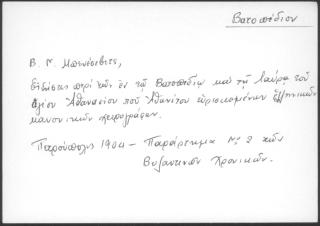 Βατοπέδιον
Β. Ν. Μπενέσεβιτς,
Εἰδήσεις περὶ τῶν ἐν τῷ Βατοπεδίῳ καὶ τῇ Λαύρᾳ τοῦ
ἁγίου Ἀθανασίου τοῦ Ἀθωνίτου εὑρισκομένων ἑλληνικῶν
κανονικῶν χειρογράφων.
Πετρούπολις 1904 – Παράρτημα Nο 2 τῶν
Βυζαντινῶν Χρονικῶν.